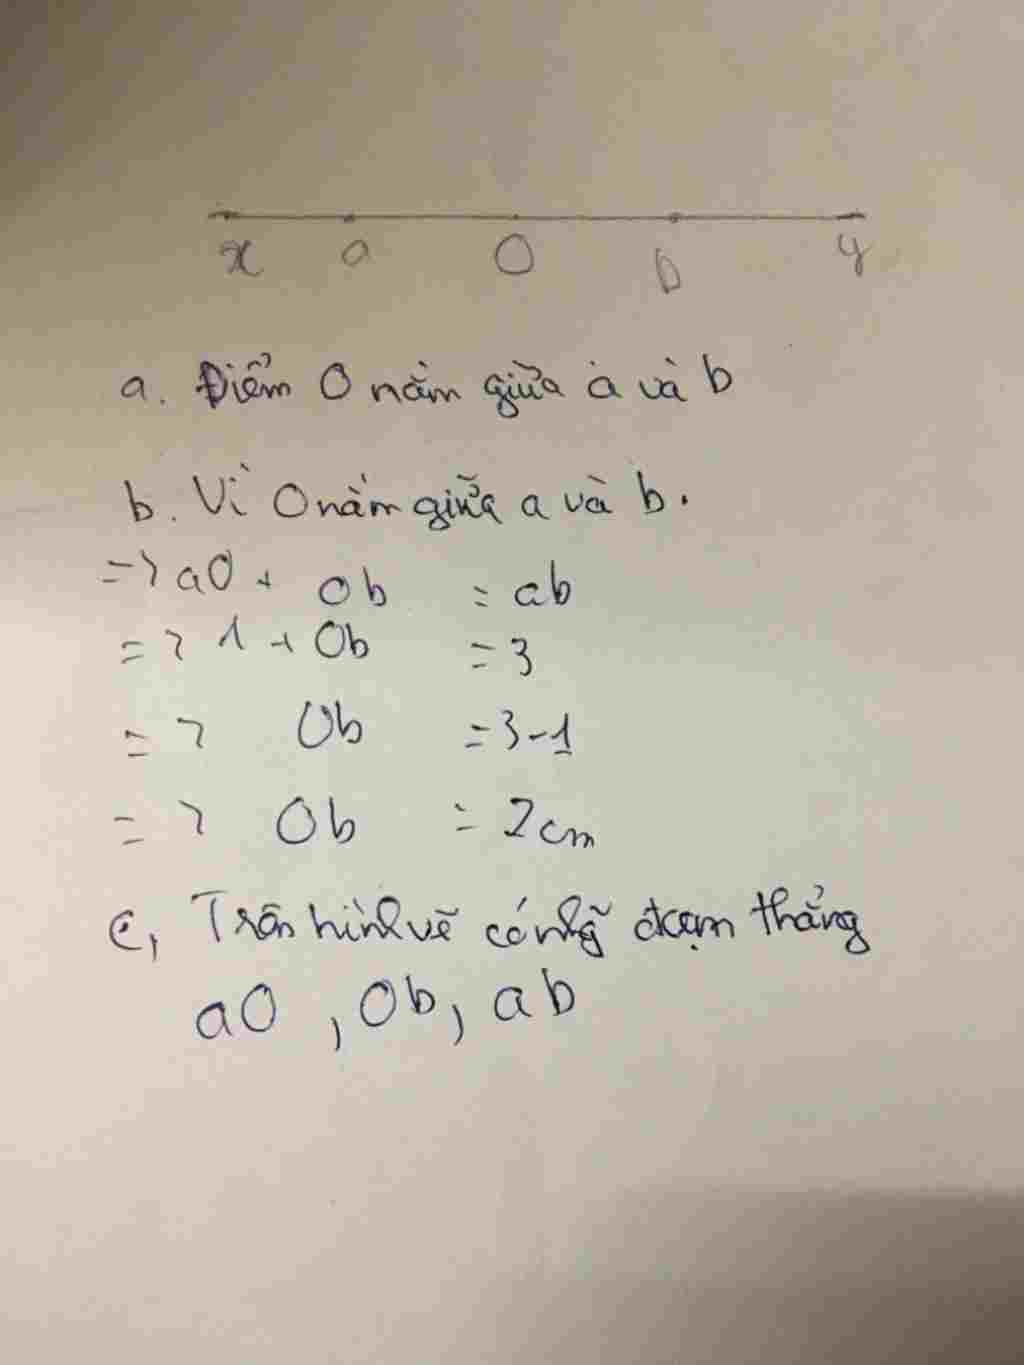 x a O b y
a. Điểm O nằm giữa a và b
b. Vì O nằm giữa a và b.
=> aO + Ob = ab
=> 1 + Ob = 3
=> Ob = 3-1
=> Ob = 2cm
c, Trên hình vẽ có đoạn thẳng
aO, Ob, ab